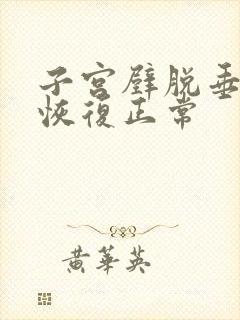 子宮壁脱垂
恢復正常
黃華英